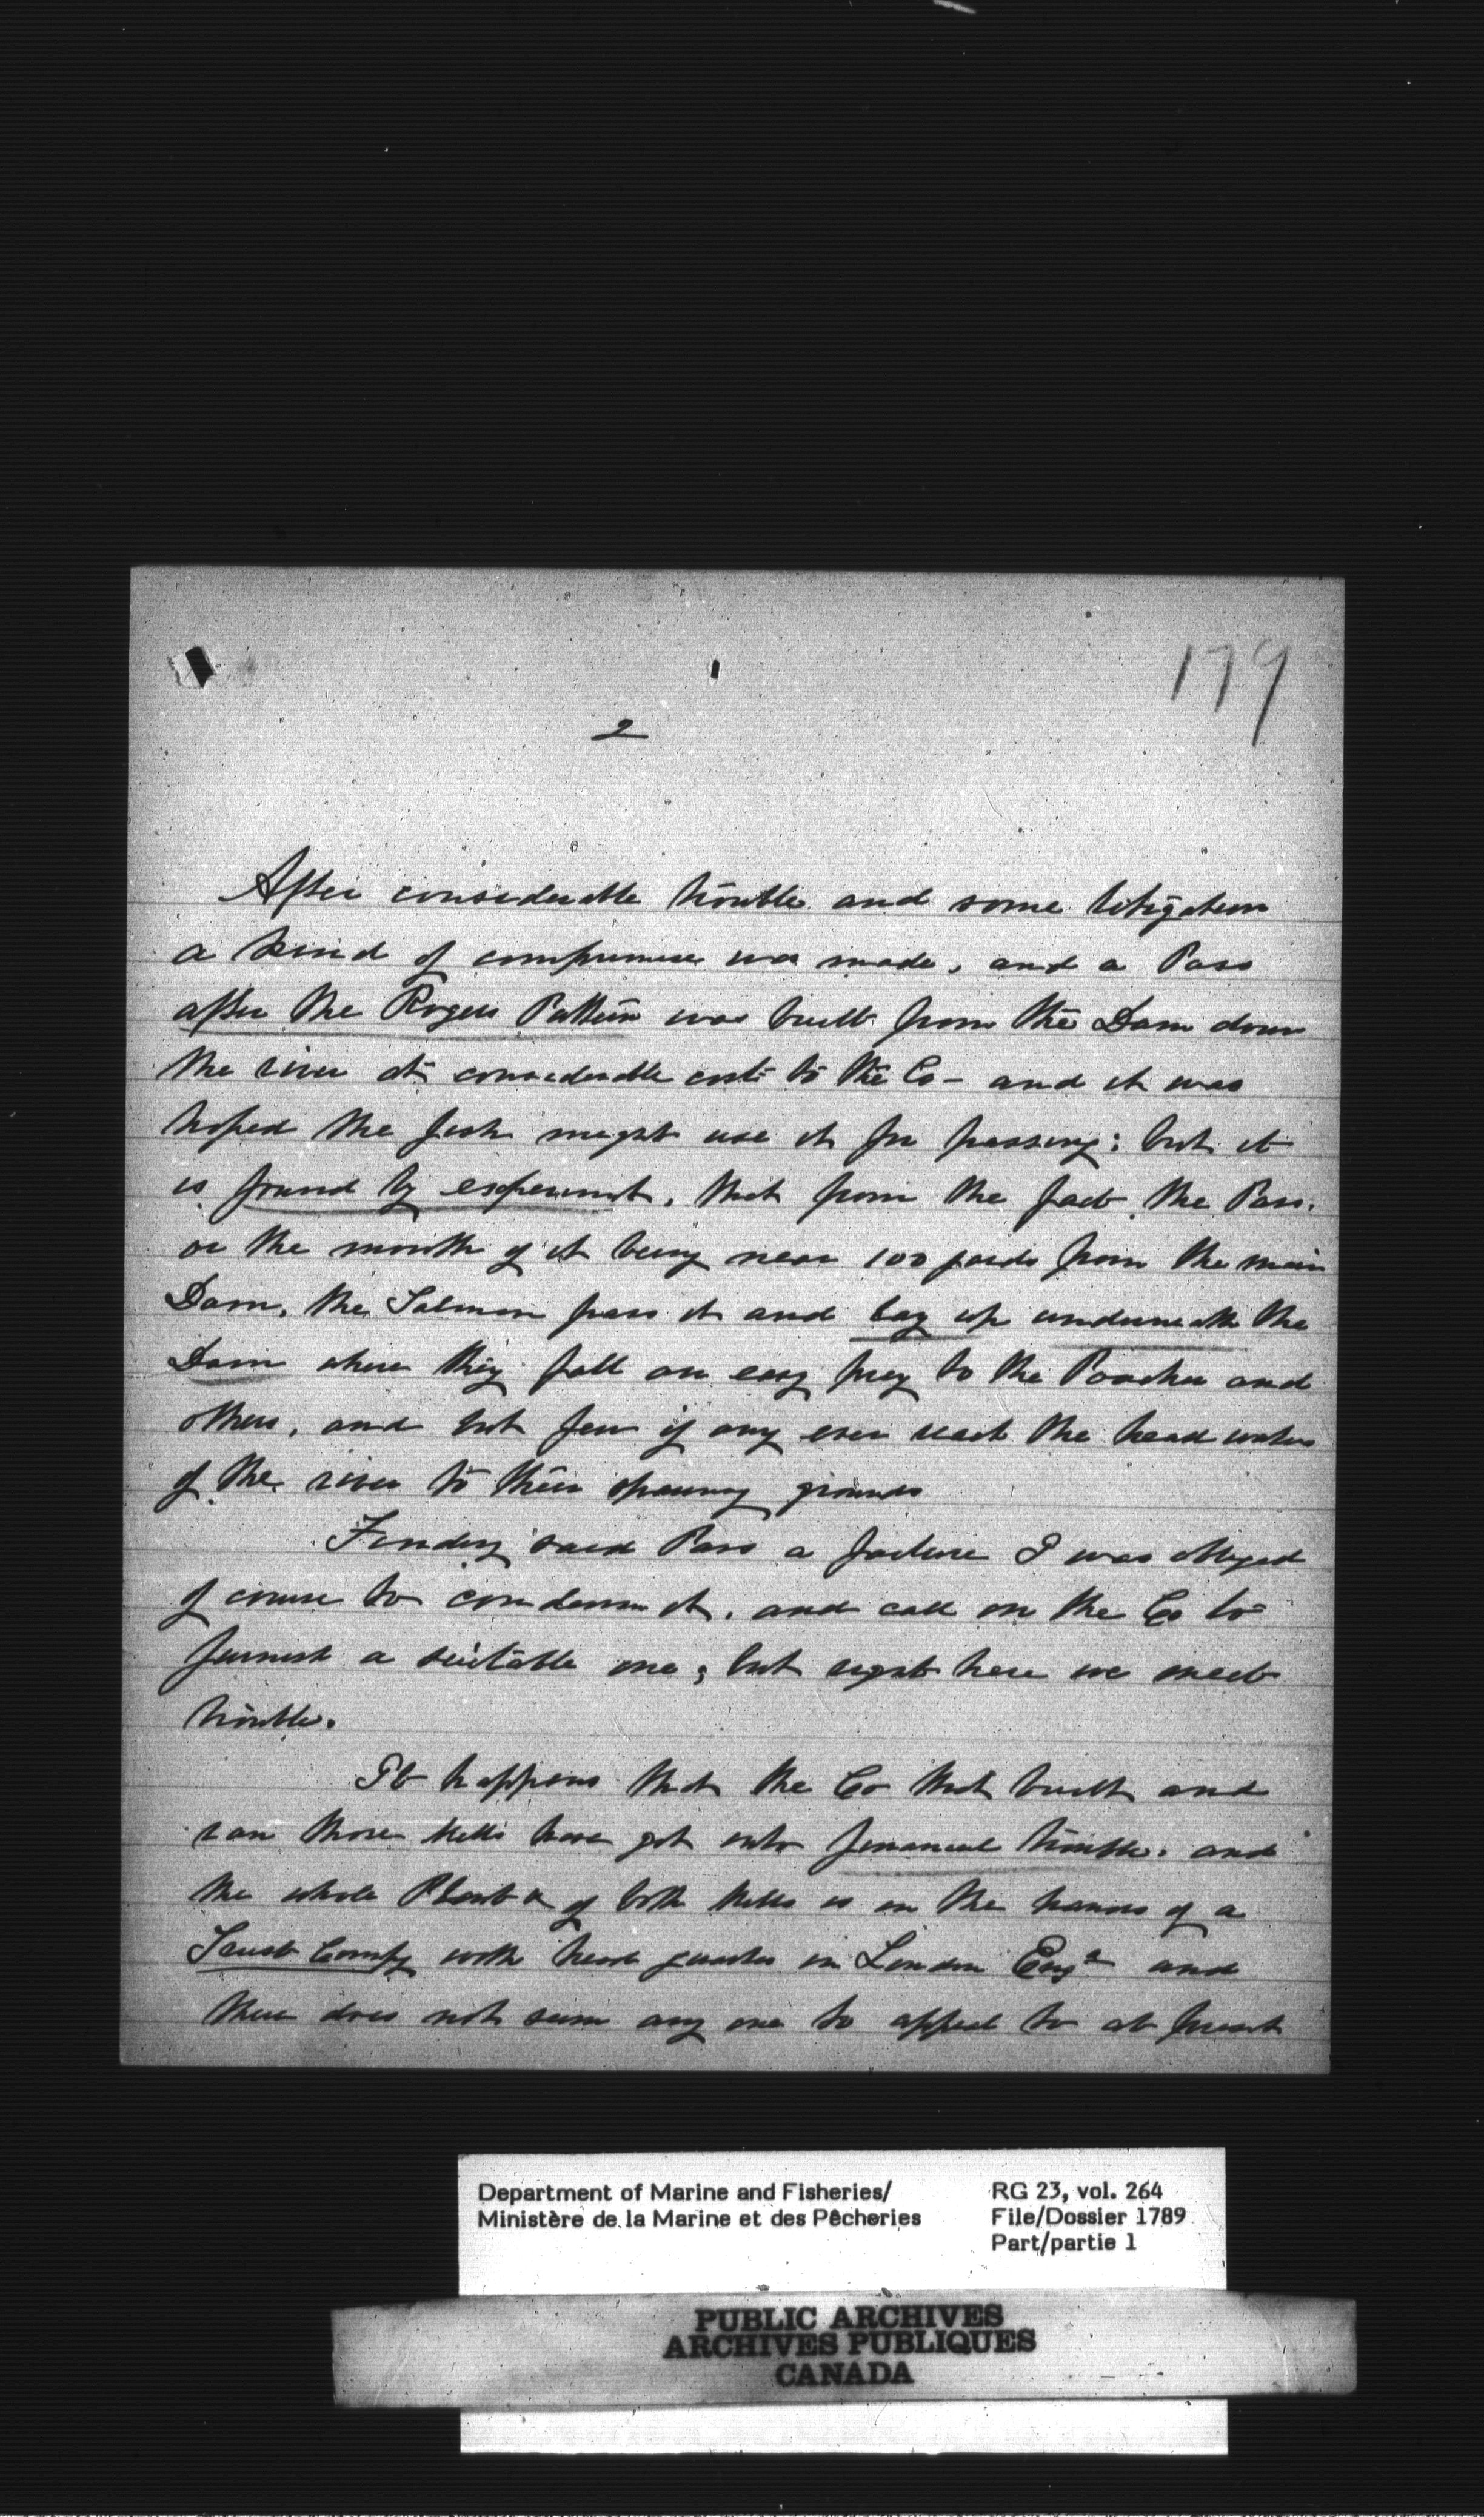 179
2
After considerable trouble and some litigation
a kind of compromise was made, and a Pass
after the Rogers Pattern was built from the Dam down
the river at considerable cost to the Co - and it was
hoped the fish might use it for passing; but it
is found by experiment, that from the fact the Pass,
or the mouth of it being near 100 yards from the main
Dam, the Salmon pass it and lay up underneath the
Dam where they fall an easy prey to the Poacher and
others, and but few if any ever reach the head waters
of the river to their spawning grounds
Finding said Pass a failure I was obliged
of course to condemn it, and call on the Co to
furnish a suitable one; but right here we meet
trouble.
It happens that the Co that built and
ran those Mills have got into financial trouble. and
the whole Plant of both Mills is in the hands of a
Trust Compy with head quarters in London Engd and
there does not seem any one to appeal to at present
Department of Marine and Fisheries/
Ministère de la Marine et des Pêcheries
RG 23, vol. 264
File/Dossier 1789
Part/partie 1
PUBLIC ARCHIVES
ARCHIVES PUBLIQUES
CANADA